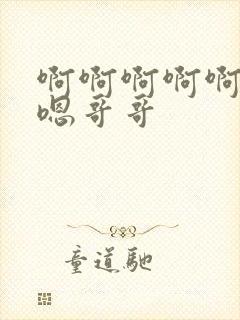 啊啊啊啊啊
嗯哥哥
童道驰